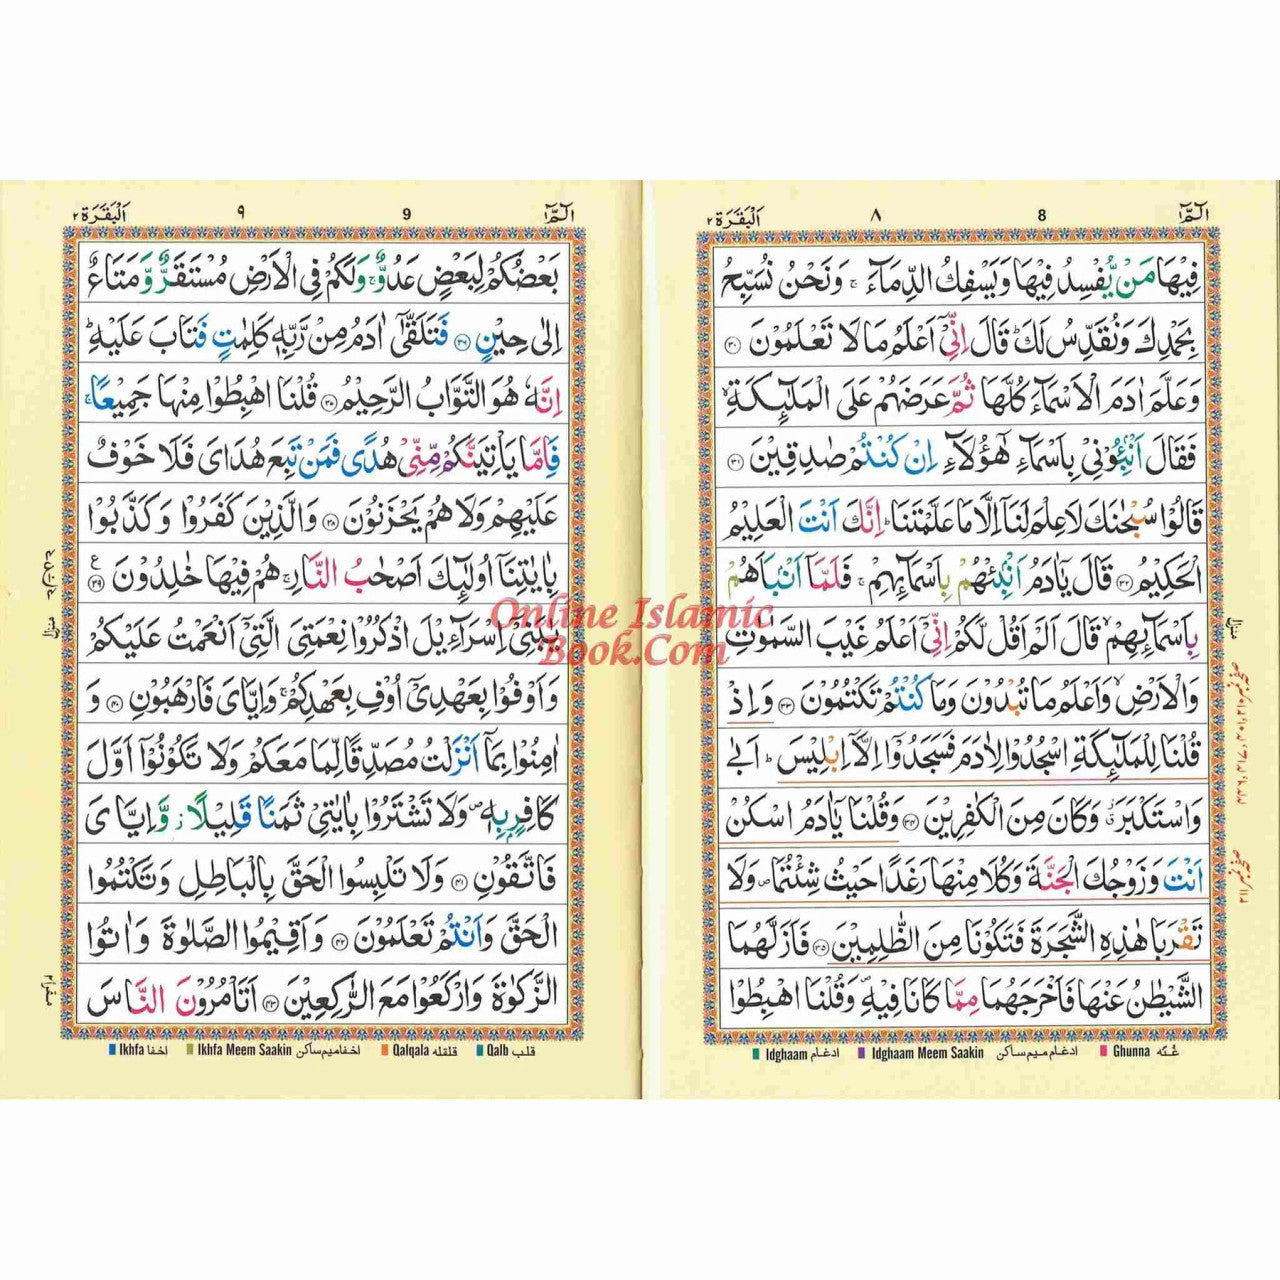 الٓمّٓ ١ 8 ٨ اَلْبَقَرَة ٢
فِيْهَا مَنْ يُّفْسِدُ فِيْهَا وَيَسْفِكُ الدِّمَآءَ ۚ وَنَحْنُ نُسَبِّحُ
بِحَمْدِكَ وَنُقَدِّسُ لَكَ ؕ قَالَ اِنِّیْۤ اَعْلَمُ مَا لَا تَعْلَمُوْنَ ﴿۳۰﴾
وَعَلَّمَ اٰدَمَ الْاَسْمَآءَ كُلَّهَا ثُمَّ عَرَضَهُمْ عَلَى الْمَلٰٓئِكَةِ ۙ
فَقَالَ اَنْۢبِـُٔوْنِیْ بِاَسْمَآءِ هٰۤؤُلَآءِ اِنْ كُنْتُمْ صٰدِقِيْنَ ﴿۳۱﴾
قَالُوْا سُبْحٰنَكَ لَا عِلْمَ لَنَاۤ اِلَّا مَا عَلَّمْتَنَا ؕ اِنَّكَ اَنْتَ الْعَلِيْمُ
الْحَكِيْمُ ﴿۳۲﴾ قَالَ يٰۤاٰدَمُ اَنْۢبِئْهُمْ بِاَسْمَآئِهِمْ ۚ فَلَمَّاۤ اَنْۢبَاَهُمْ
بِاَسْمَآئِهِمْ ۙ قَالَ اَلَمْ اَقُلْ لَّكُمْ اِنِّیْۤ اَعْلَمُ غَيْبَ السَّمٰوٰتِ
وَالْاَرْضِ ۙ وَاَعْلَمُ مَا تُبْدُوْنَ وَمَا كُنْتُمْ تَكْتُمُوْنَ ﴿۳۳﴾ وَاِذْ
قُلْنَا لِلْمَلٰٓئِكَةِ اسْجُدُوْا لِاٰدَمَ فَسَجَدُوْۤا اِلَّاۤ اِبْلِيْسَ ؕ اَبٰى
وَاسْتَكْبَرَ ۗ وَكَانَ مِنَ الْكٰفِرِيْنَ ﴿۳۴﴾ وَقُلْنَا يٰۤاٰدَمُ اسْكُنْ
اَنْتَ وَزَوْجُكَ الْجَنَّةَ وَكُلَا مِنْهَا رَغَدًا حَيْثُ شِئْتُمَا ۪ وَلَا
تَقْرَبَا هٰذِهِ الشَّجَرَةَ فَتَكُوْنَا مِنَ الظّٰلِمِيْنَ ﴿۳۵﴾ فَاَزَلَّهُمَا
الشَّيْطٰنُ عَنْهَا فَاَخْرَجَهُمَا مِمَّا كَانَا فِيْهِ ۪ وَقُلْنَا اهْبِطُوْا
Idghaam ادغام Idghaam Meem Saakin ادغام ميم ساكن Ghunna غُنّه
الٓمّٓ ١ 9 ٩ اَلْبَقَرَة ٢
بَعْضُكُمْ لِبَعْضٍ عَدُوٌّ ۚ وَلَكُمْ فِی الْاَرْضِ مُسْتَقَرٌّ وَّمَتَاعٌ
اِلٰى حِيْنٍ ﴿۳۶﴾ فَتَلَقّٰۤى اٰدَمُ مِنْ رَّبِّهٖ كَلِمٰتٍ فَتَابَ عَلَيْهِ ؕ
اِنَّهٗ هُوَ التَّوَّابُ الرَّحِيْمُ ﴿۳۷﴾ قُلْنَا اهْبِطُوْا مِنْهَا جَمِيْعًا ۚ
فَاِمَّا يَاْتِيَنَّكُمْ مِّنِّیْ هُدًى فَمَنْ تَبِعَ هُدَایَ فَلَا خَوْفٌ
عَلَيْهِمْ وَلَا هُمْ يَحْزَنُوْنَ ﴿۳۸﴾ وَالَّذِيْنَ كَفَرُوْا وَكَذَّبُوْا
بِاٰيٰتِنَاۤ اُولٰٓئِكَ اَصْحٰبُ النَّارِ ۚ هُمْ فِيْهَا خٰلِدُوْنَ ﴿۳۹﴾ ع
يٰبَنِیْۤ اِسْرَآءِيْلَ اذْكُرُوْا نِعْمَتِیَ الَّتِیْۤ اَنْعَمْتُ عَلَيْكُمْ
وَاَوْفُوْا بِعَهْدِیْۤ اُوْفِ بِعَهْدِكُمْ ۚ وَاِيَّایَ فَارْهَبُوْنِ ﴿۴۰﴾ وَ
اٰمِنُوْا بِمَاۤ اَنْزَلْتُ مُصَدِّقًا لِّمَا مَعَكُمْ وَلَا تَكُوْنُوْۤا اَوَّلَ
كَافِرٍۭ بِهٖ ۪ وَلَا تَشْتَرُوْا بِاٰيٰتِیْ ثَمَنًا قَلِيْلًا ؗ وَّاِيَّایَ
فَاتَّقُوْنِ ﴿۴۱﴾ وَلَا تَلْبِسُوا الْحَقَّ بِالْبَاطِلِ وَتَكْتُمُوا
الْحَقَّ وَاَنْتُمْ تَعْلَمُوْنَ ﴿۴۲﴾ وَاَقِيْمُوا الصَّلٰوةَ وَاٰتُوا
الزَّكٰوةَ وَارْكَعُوْا مَعَ الرّٰكِعِيْنَ ﴿۴۳﴾ اَتَاْمُرُوْنَ النَّاسَ
Ikhfa اخفا Ikhfa Meem Saakin اخفاميم ساكن Qalqala قلقله Qalb قلب
Online Islamic
Book.Com